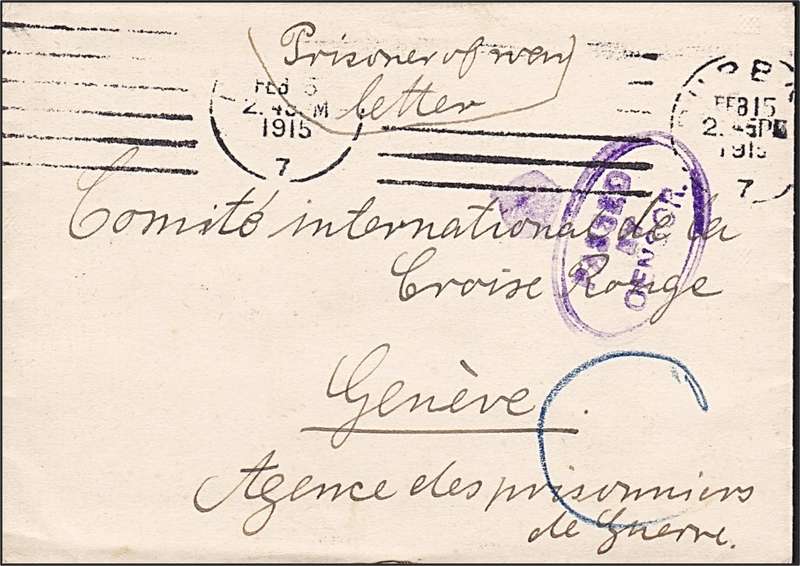 Prisoner of war
letter
FEB 5
2.45 M
1915
7
FEB 15
2.45 PM
1915
7
PASSED
BY
CENSOR.
Comité international de la
Croise Rouge
Genève.
Agence des prisonniers
de Guerre.